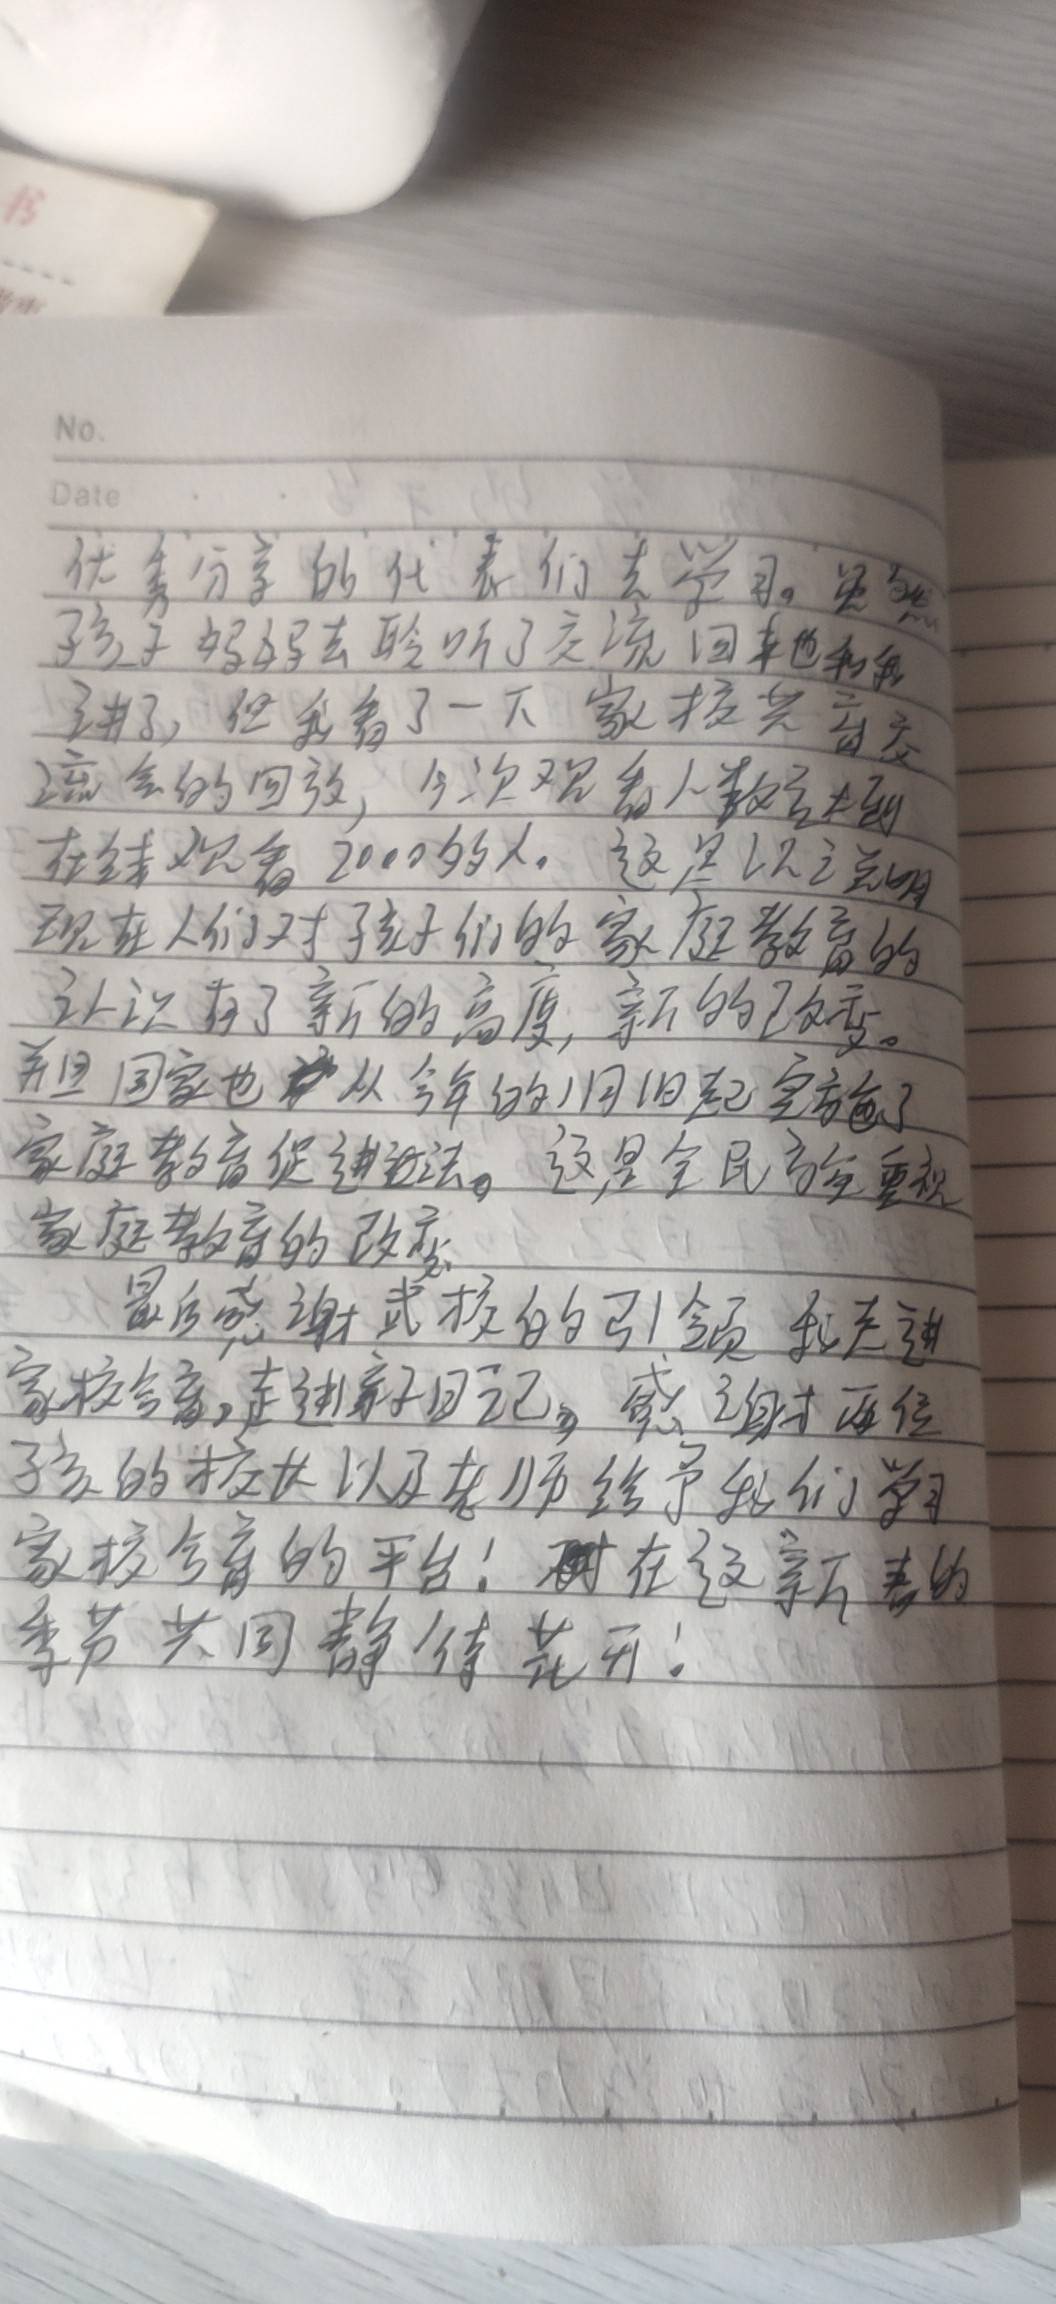 书
No.
Date
优秀分享的代表们去学习。虽然
孩子妈妈去聆听了交流回来也和我
讲了,但我看了一下家校共育交
流会的回放,今次观看人数达到
在线观看2000的人。这足以说明
现在人们对孩子们的家庭教育的
认识有了新的高度,新的改变。
并且国家也从今年的1月1日起实施了
家庭教育促进法。这是全民 重视
家庭教育的改变
最后感谢武校的引领我走进
家校合育,走进亲子日记。感谢两位
孩的校长以及老师给予我们学习
家校合育的平台!在这新春的
季节共同静待花开!